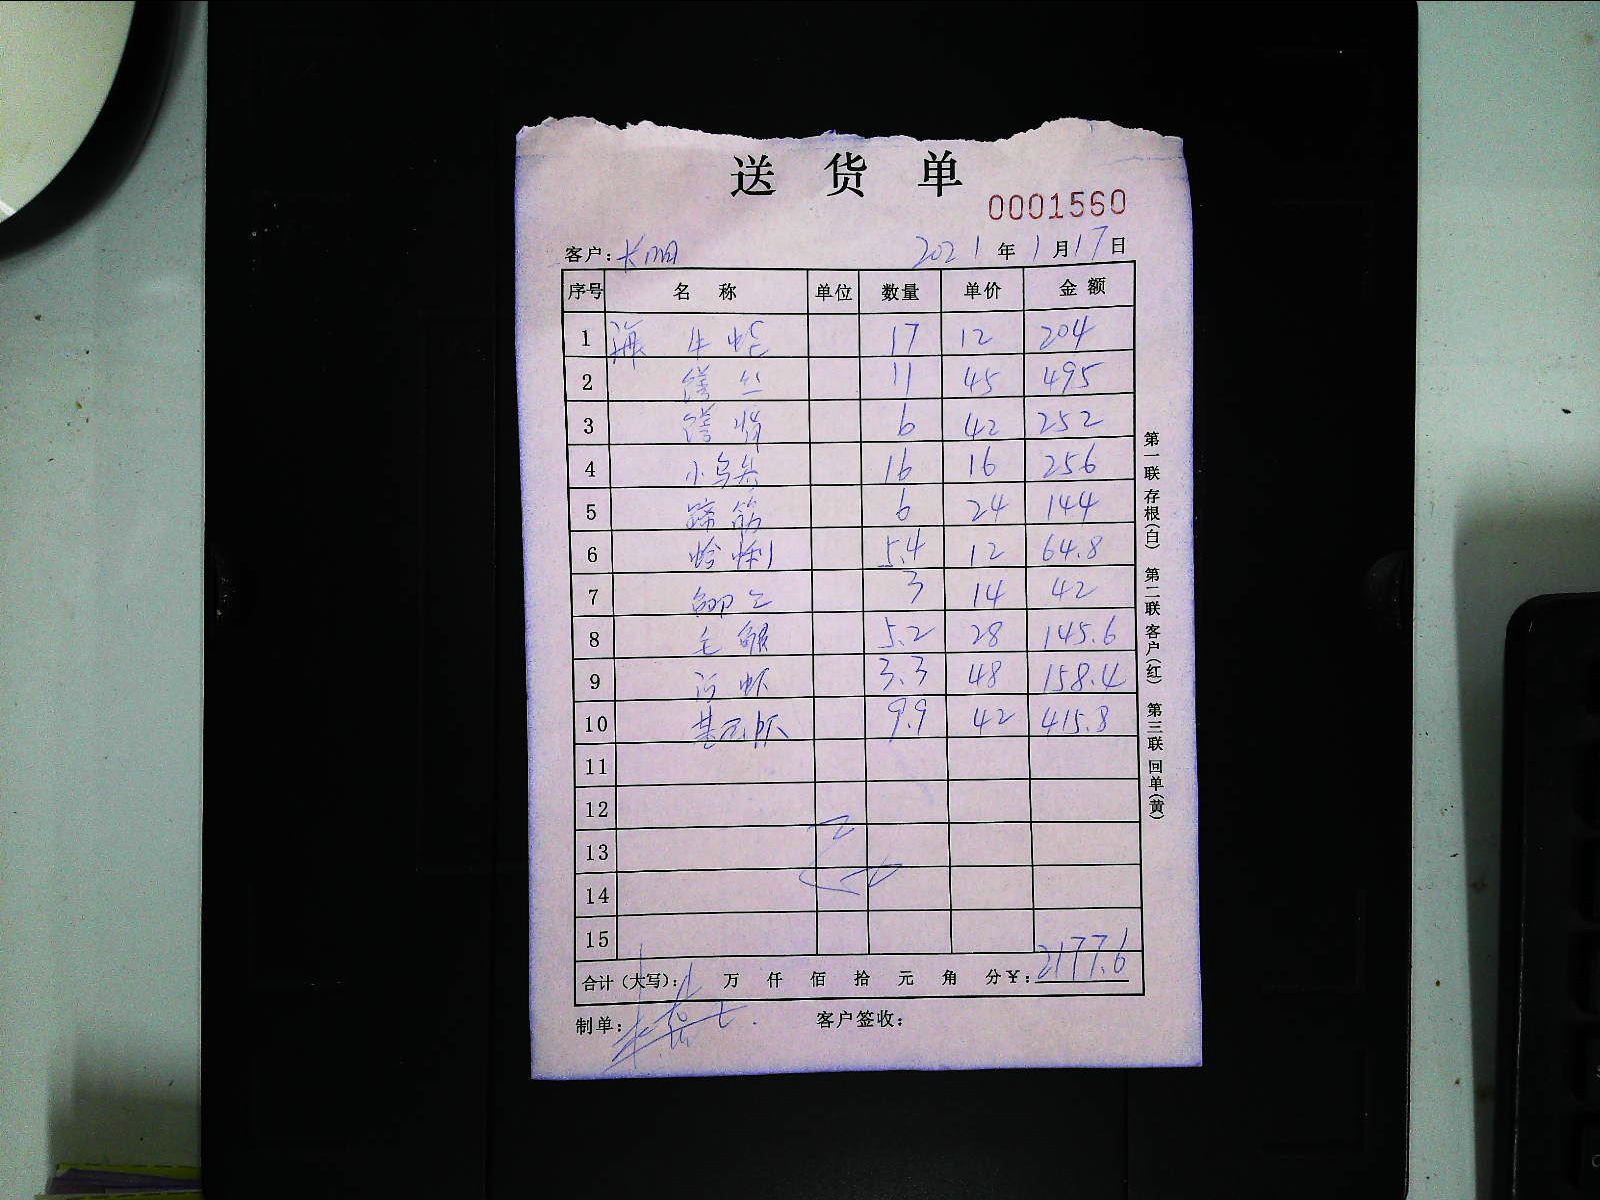 送 货 单
0001560
客户: 2021 年 1 月 17 日
序号 名 称 单位 数量 单价 金 额
1 海 牛 17 12 204
2 丝 11 45 495
3 6 42 252
4 小乌 16 16 256
5 蹄筋 6 24 144
6 蛤蜊 5.4 12 64.8
7 3 14 42
8 毛蚶 5.2 28 145.6
9 河虾 3.3 48 158.4
10 基围虾 9.9 42 415.8
11
12
13
14
15
合计(大写): 万 仟 佰 拾 元 角 分¥: 2177.6
制单: 客户签收:
第一联 存根(白) 第二联 客户(红) 第三联 回单(黄)